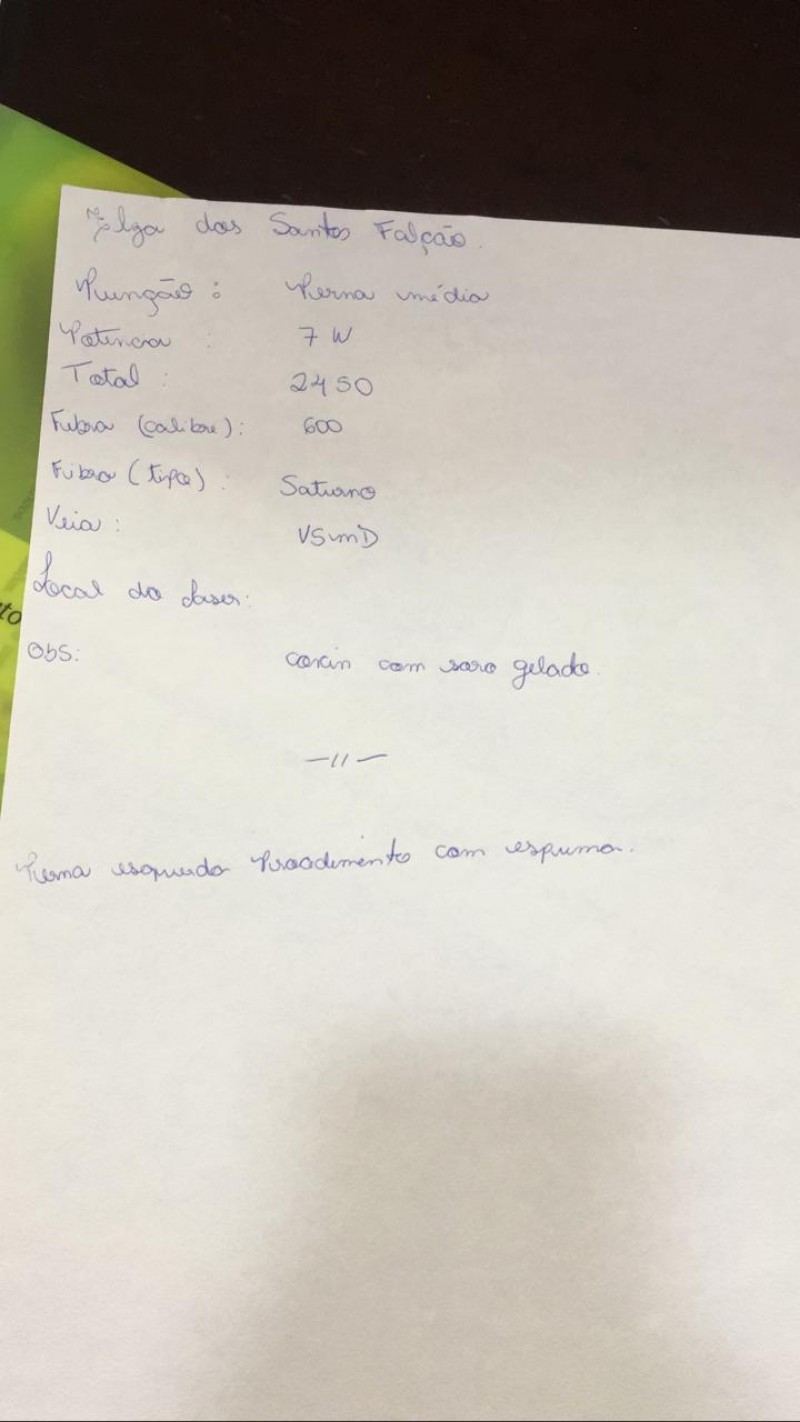 Elga dos Santos Falção.
Punção: Perna média
Potência : 7 W
Total : 2450
Fibra (calibre): 600
Fibra (tipo) : Saturno
Veia : VSMD
Local do laser:
Obs: com soro gelado.
—11—
Perna esquerda Procedimento com espuma.
to